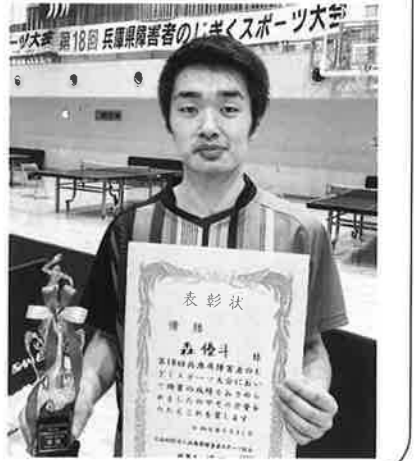 ーツ大会 第18回 兵庫県障害者のじぎくスポーツ大会
表彰状
優勝
森 優斗 様
第18回兵庫県障害者のじ
ぎくスポーツ大会におい
て頭書の成績をおさめら
れましたのでその栄誉を
たたえこれを賞します